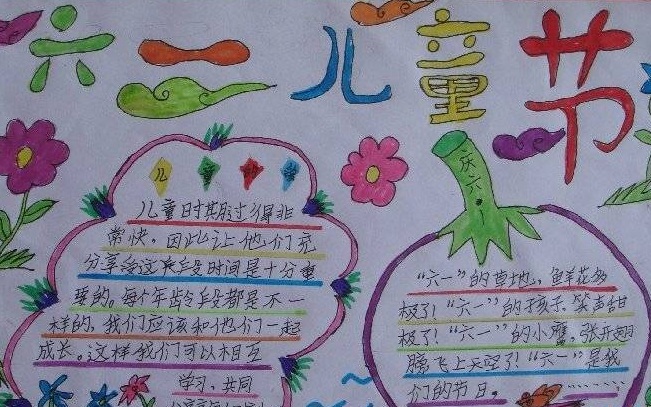 六一儿童节
儿童时期过得非
常快，因此让他们充
分享受这一段时间是十分重
要的。每个年龄段都是不一
样的，我们应该和他们一起
成长。这样我们可以相互
学习，共同
庆六·一
“六一”的草地，鲜花多
极了！“六一”的孩子，笑声甜
极了！“六一”的小鹰，张开翅
膀飞上天空了！“六一”是我
们的节日。